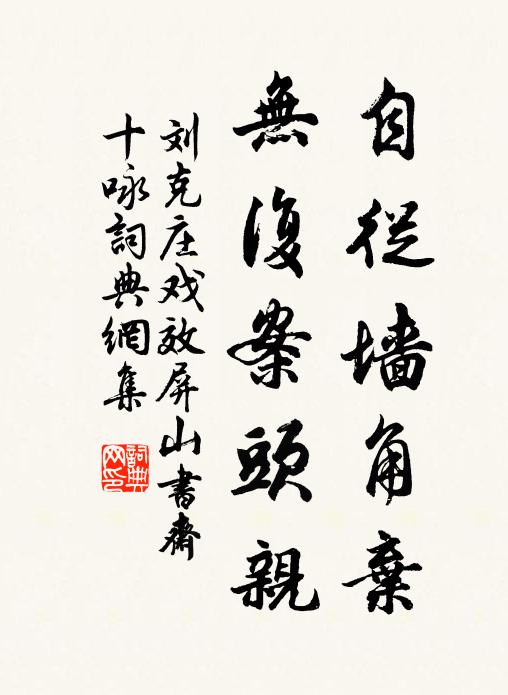 自從墙角棄
無復案頭親
刘克庄戏效屏山書齋
十咏詞典網集
詞典网印